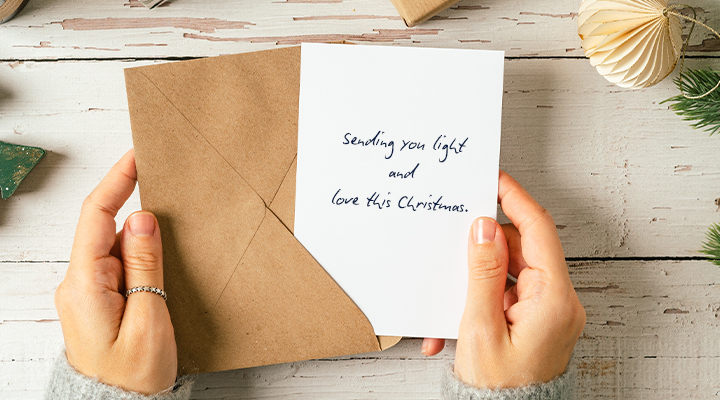 Sending you light
and
love this Christmas.